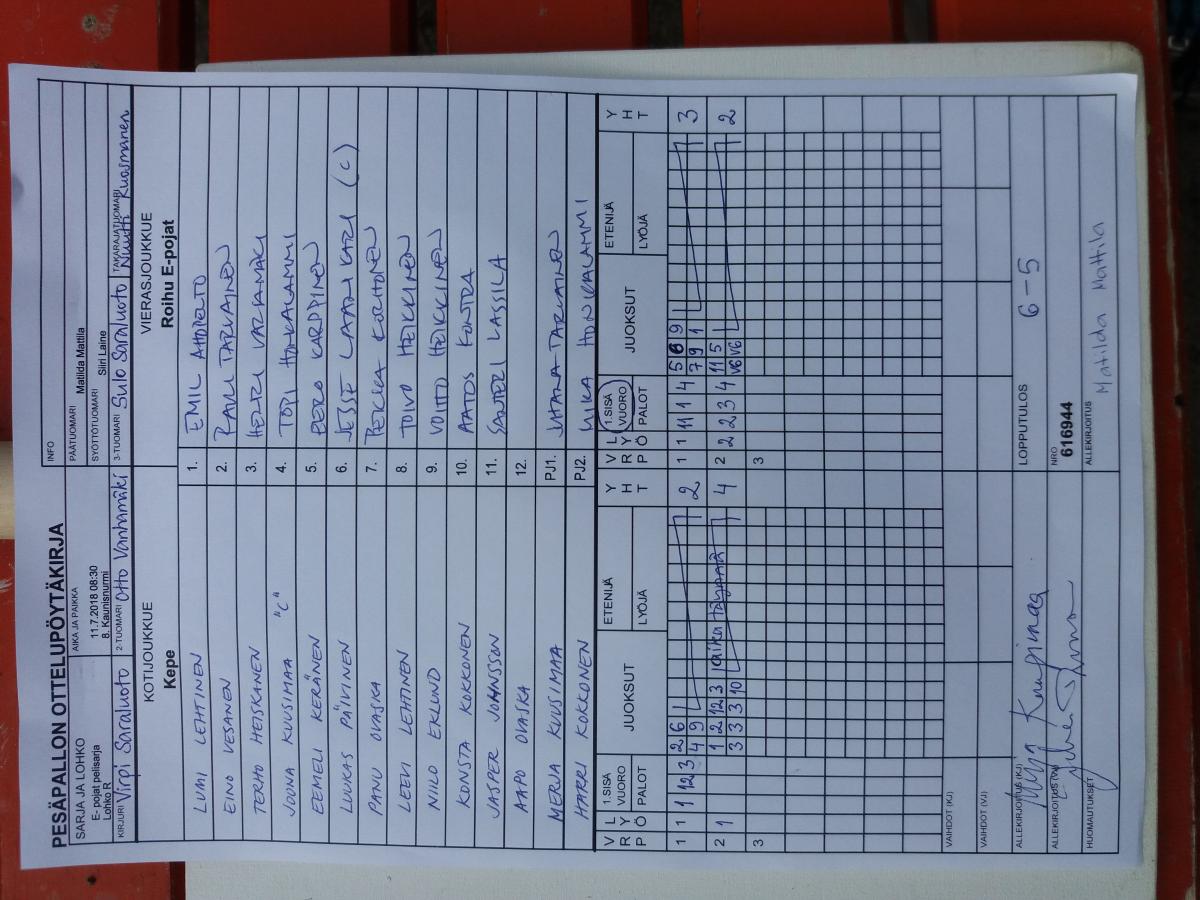 PESÄPALLON OTTELUPÖYTÄKIRJA
SARJA JA LOHKO
E- pojat pelisarja
Lohko R
AIKA JA PAIKKA
11.7.2018 08:30
8. Kaunisnurmi
INFO
PÄÄTUOMARI Matilda Mattila
SYÖTTÖTUOMARI Siiri Laine
KIRJURI Virpi Saraluoto 2-TUOMARI Otto Vanhamäki 3-TUOMARI Sulo Saraluoto TAKARAJATUOMARI Nuutti Kuosmanen
KOTIJOUKKUE VIERASJOUKKUE
Kepe Roihu E-pojat
LUMI LEHTINEN 1. EMIL AHOPELTO
EINO VESANEN 2. RAULI TARVAINEN
TERHO HEISKANEN 3. HENRI VARTIAMÄKI
JOONA KUUSIMAA "C" 4. TOPI HONKALAMMI
EEMELI KERÄNEN 5. EERO KARPPINEN
LUUKAS PÄIVINEN 6. JESSE LAANIKARI (C)
PANU OVASKA 7. PEKKA KORHONEN
LEEVI LEHTINEN 8. TOIVO HEIKKINEN
NIILO EKLUND 9. VOITTO HEIKKINEN
KONSTA KOKKONEN 10. AATOS KONTRA
JASPER JOHNSSON 11. SANTERI LASSILA
AAPO OVASKA 12.
MERJA KUUSIMAA PJ1. JUHANA TARVAINEN
HARRI KOKKONEN PJ2. MIKA HONKALAMMI
V R P L Y Ö 1.SISÄ VUORO PALOT JUOKSUT ETENIJÄ LYÖJÄ Y H T V R P L Y Ö 1.SISÄ VUORO PALOT JUOKSUT ETENIJÄ LYÖJÄ Y H T
1 1 1 12 3 2 6 2 1 1 11 1 4 5 8 9 3
4 9 7 9 1
2 1 1 2 12 3 aika täynnä 4 2 2 2 3 4 11 5 2
3 3 3 10 V6 V6
3 3
VAIHDOT (KJ)
VAIHDOT (VJ)
ALLEKIRJOITUS (KJ) LOPPUTULOS 6-5
ALLEKIRJOITUS (VJ) NRO 616944
HUOMAUTUKSET ALLEKIRJOITUS Matilda Mattila